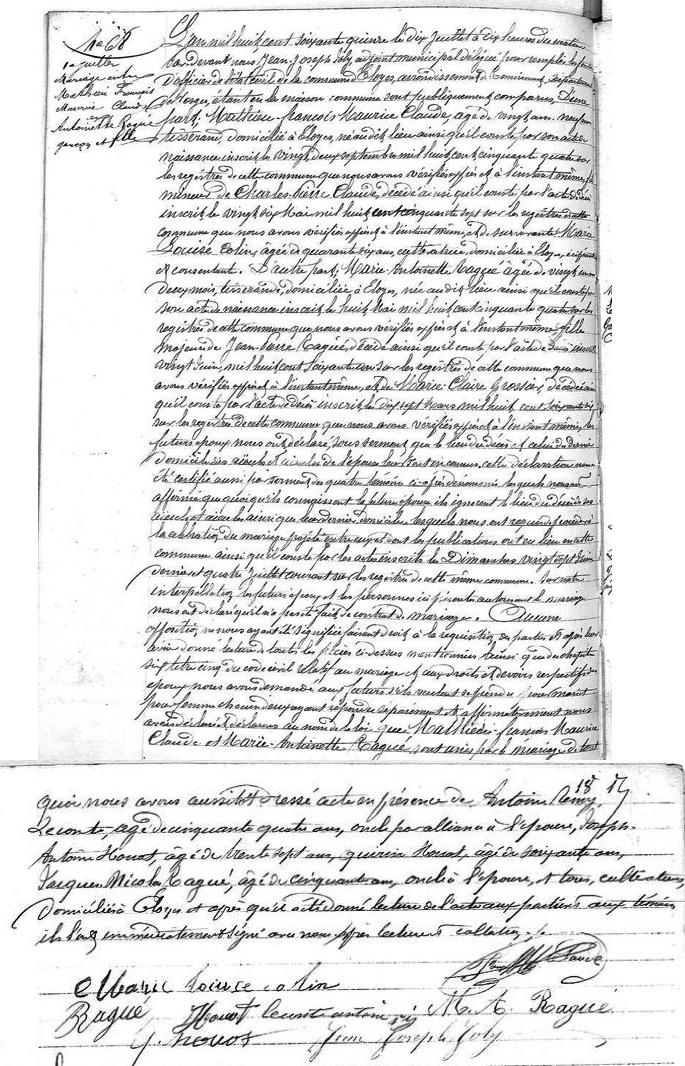 N° 68
10 juillet
Mariage entre
Mathieu François
Maurice Claude
et
Antoinette Ragué
garçon et fille
L'an mil huit cent soixante quinze le dix Juillet à dix heures du matin
pardevant nous Jean Joseph Joly adjoint municipal délégué pour remplir les
d'officier de l'état civil de la commune d'Eloyes, arrondissement de Remiremont, département
de Vosges, étant en la maison commune sont publiquement comparus, D'une
part, Mathieu-françois Maurice Claude, âgé de vingt ans
tisserand, domicilié à Eloyes, né au dit lieu ainsi qu'il conste par son acte de
naissance inscrit le vingt deux septembre mil huit cent cinquante quatre sur
les registres de cette commune que nous avons vérifiés à l'instant même, fils
mineur de Charles-Pierre Claude, décédé ainsi qu'il conste par l'acte de décès
inscrit le vingt six Mai mil huit cent cinquante sept sur les registres de cette
commune que nous avons vérifiés à l'instant même, et de survivante Marie
Louise Colin, âgée de quarante six ans, cultivatrice, domiciliée à Eloyes, ici présente
et consentant. D'autre part, Marie-Antoinette Ragué âgée de vingt un ans
deux mois, tisserande, domiciliée à Eloyes, née au dit lieu ainsi qu'il conste par
son acte de naissance inscrit le huit Mai mil huit cent cinquante quatre sur les
registres de cette commune que nous avons vérifiés à l'instant même, fille
majeure de Jean Pierre Ragué, décédé ainsi qu'il conste par l'acte de décès inscrit
vingt Juin, mil huit cent soixante un sur les registres de cette commune que nous
avons vérifiés à l'instant même, et de Marie-Claire Grosjean, décédée ainsi
qu'il conste par l'acte de décès inscrit le dix sept Mars mil huit cent soixante
sur les registres de cette commune que nous avons vérifiés à l'instant même, les
futurs epoux nous ont déclaré sous serment que le lieu du décès et celui du dernier
domicile des aïeuls et aïeules de l'épouse leur sont inconnus, cette déclaration nous a
été certifiée aussi par serment des quatre témoins ci-après dénommés lesquels nous ont
affirmé que quoiqu'ils connaissent la future épouse ils ignorent le lieu du décès des
aïeuls et aïeules ainsi que leur dernier domicile lesquels nous ont requis de procéder à
la célébration du mariage projeté entre eux et dont les publications ont eu lieu en cette
commune ainsi qu'il conste par les actes inscrits les Dimanches vingt sept Juin
dernier et quatre Juillet courant sur les registres de cette même commune. Sur notre
interpellation les futurs époux et les personnes ici présentes autorisant le mariage
nous ont déclaré qu'il n'a pas été fait de contrat de mariage. Aucune
opposition ne nous ayant été signifiée faisant droit à la réquisition des parties et après leur
avoir donné lecture de toutes les pièces ci-dessus mentionnées ainsi que du chapitre
six, titre cinq du code civil relatif au mariage et aux droits et devoirs respectifs des
époux, nous avons demandé aux futurs s'ils veulent se prendre pour mari et
pour femme chacun d'eux ayant répondu séparément et affirmativement nous
avons déclaré et déclarons au nom de la loi que Mathieu-françois Maurice
Claude et Marie-Antoinette Ragué sont unis par le mariage de tout
18
quoi nous avons aussitôt dressé acte en présence de Antoine Remy
Lecomte, âgé de cinquante quatre ans, oncle par alliance à l'épouse, Joseph-
Antoine Houot, âgé de trente sept ans, quirin Houot, âgé de soixante ans,
Jacques Nicolas Ragué, âgé de cinquante ans, oncle à l'épouse, et tous, cultivateurs,
domiciliés à Eloyes et après qu'il a été donné lecture de l'acte aux parties et aux témoins
ils l'ont immédiatement signé avec nous après lecture et collation.
Claude
Marie louise colin
Ragué Houot lecomte antoine M. A. Ragué
q. houot Jean Joseph Joly